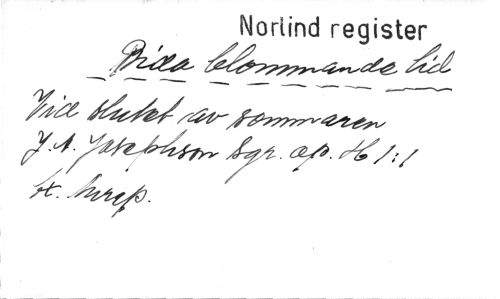 Norlind register
Dida blommande lid
Vid slutet av sommaren
J. A. Josephson Sgr. op. H 1:1